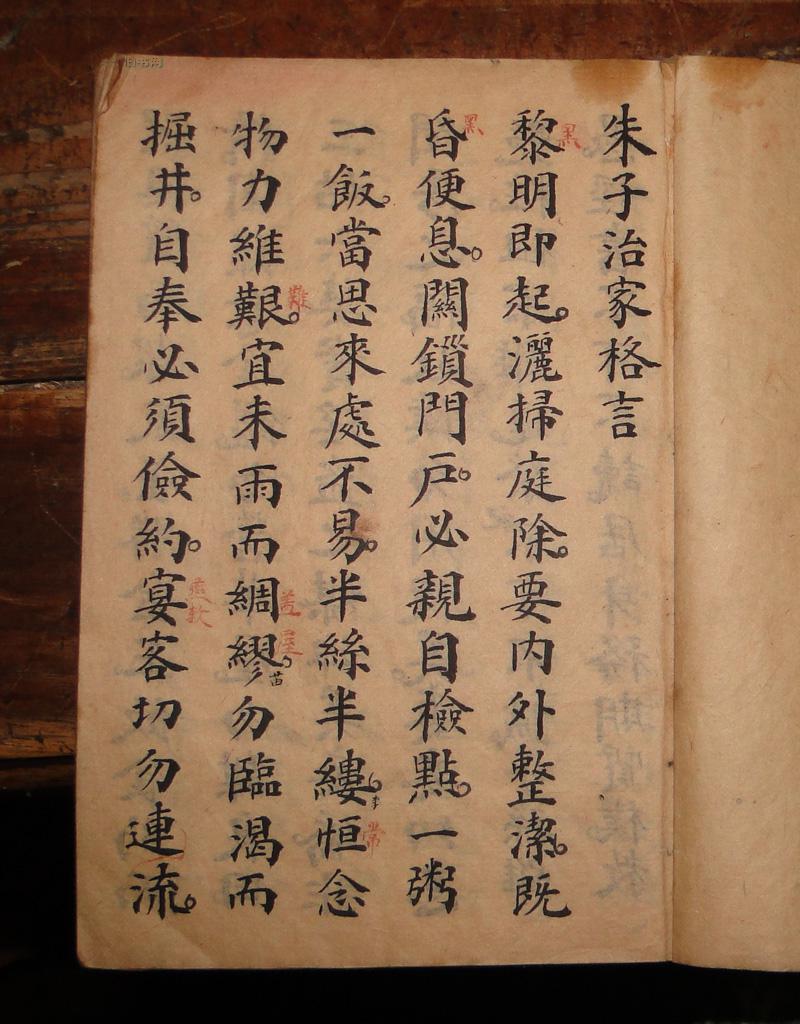 朱子治家格言
黎明即起。灑掃庭除。要內外整潔。既
昏便息。關鎖門戶。必親自檢點。一粥
一飯。當思來處不易。半絲半縷。恒念
物力維艱。宜未雨而綢繆。勿臨渴而
掘井。自奉必須儉約。宴客切勿連流。
黑
黑
常
難
蓋屋
苗